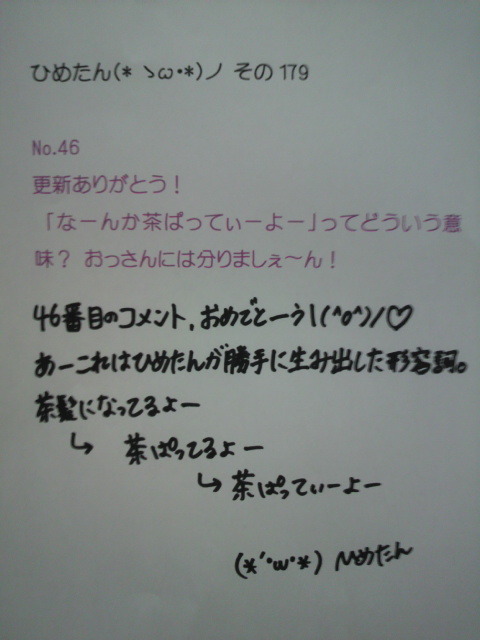 ひめたん(* ゝω・*)ノ その179
No.46
更新ありがとう！
「なーんか茶ぱってぃーよー」ってどういう意
味？ おっさんには分りましぇ〜ん！
46番目のコメント，おめでとーう\(^o^)/♡
あーこれはひめたんが勝手に生み出した形容詞。
茶髪になってるよー
↳ 茶ぱってるよー
↳ 茶ぱってぃーよー
(*´・ω・*) ひめたん